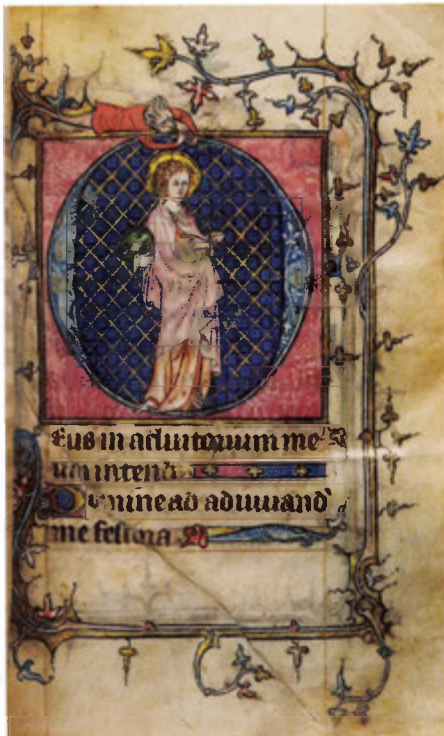 Eus in adiutorium me
um intend
omine ad adiuuand
me festina